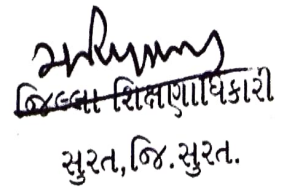 જિલ્લા શિક્ષણાધિકારી
સુરત, જિ. સુરત.